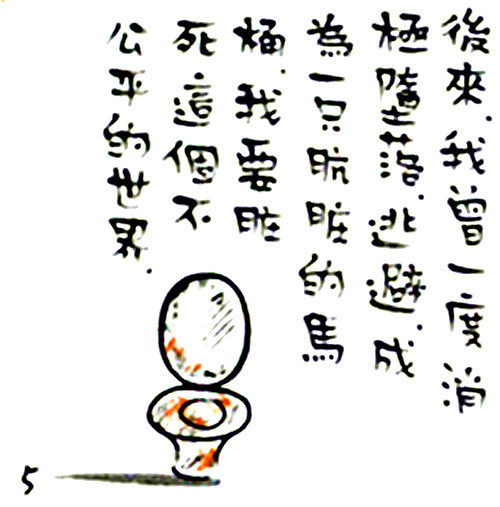 後來.我曾一度消
極墮落.逃避.成
為一只肮脏的馬
桶.我要脏
死這個不
公平的世界.
5